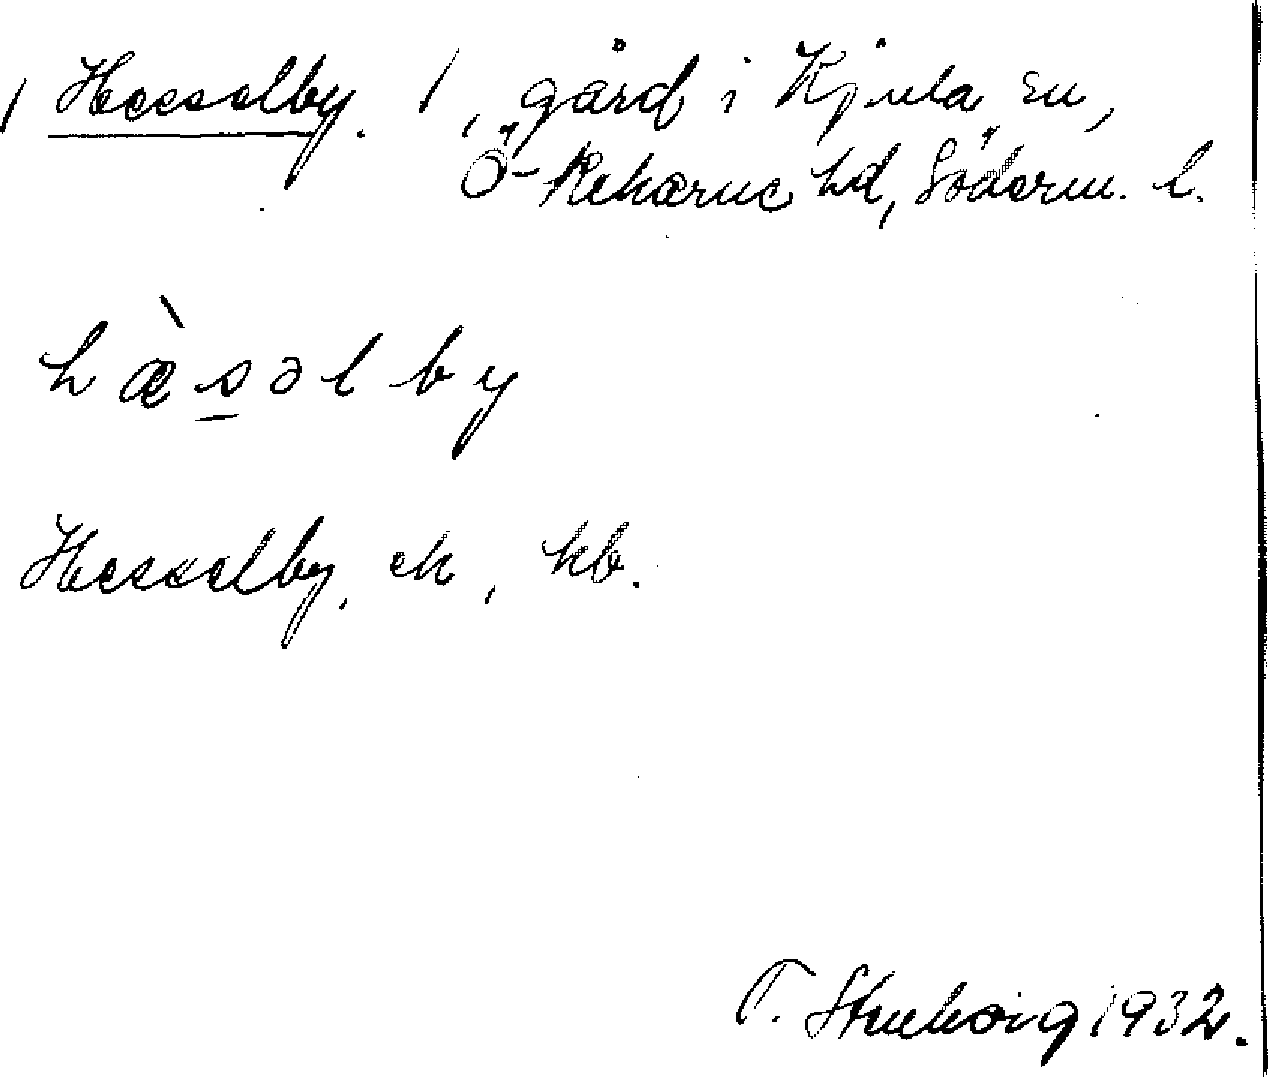 Hesselby. 1, gård i Kjula sn,
Ö-Rekarne hd, Söderm. l.
hæ̀səlby
Hesselby, ek, kb.
T. 1932.